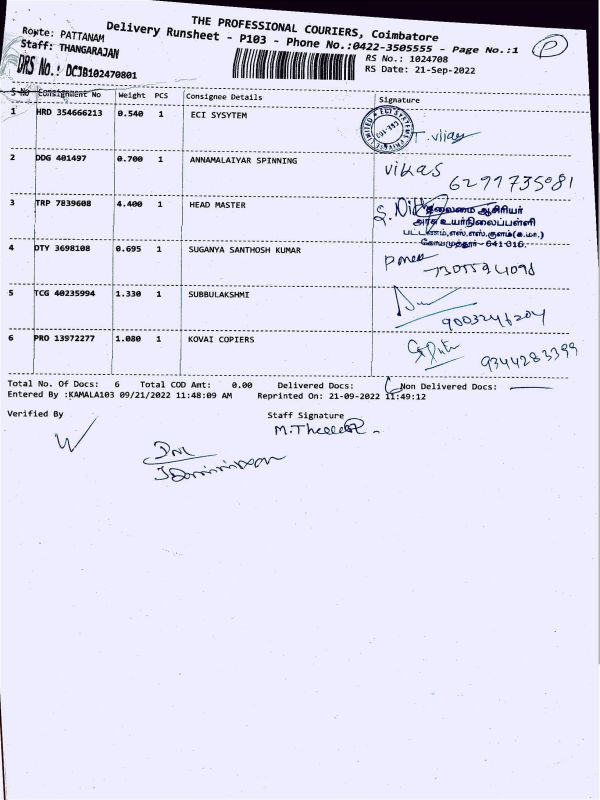 THE PROFESSIONAL COURIERS, Coimbatore
Delivery Runsheet - P103 - Phone No.:0422-3505555 - Page No.:1
P
Route: PATTANAM
Staff: THANGARAJAN
RS No.: 1024708
DRS No.: DCJB102470801
RS Date: 21-Sep-2022
S No Consignment No Weight PCS Consignee Details Signature
1 HRD 354666213 0.540 1 ECI SYSYTEM T. vijay
2 DDG 401497 0.700 1 ANNAMALAIYAR SPINNING vikas
6299735081
3 TRP 7839608 4.400 1 HEAD MASTER
தலைமை ஆசிரியர்
அரசு உயர்நிலைப்பள்ளி
பட்டணம்,எஸ்.எஸ்.குளம்(க.மா.)
கோயமுத்தூர் - 641 016.
4 DTY 3698108 0.695 1 SUGANYA SANTHOSH KUMAR
5 TCG 40235994 1.330 1 SUBBULAKSHMI
9003246204
6 PRO 13972277 1.080 1 KOVAI COPIERS
9344283399
Total No. Of Docs: 6 Total COD Amt: 0.00 Delivered Docs: 6 Non Delivered Docs:
Entered By :KAMALA103 09/21/2022 11:48:09 AM Reprinted On: 21-09-2022 11:49:12
Verified By Staff Signature